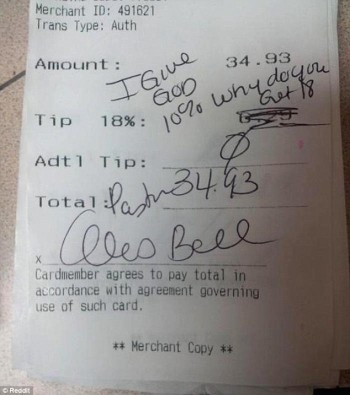 Merchant ID: 491621
Trans Type: Auth
Amount: 34.93
I Give
God
10% why do you
Get 18
Tip 18%:
Adtl Tip: 0
Total: Pastor 34.93
x Alois Bell
Cardmember agrees to pay total in
accordance with agreement governing
use of such card.
** Merchant Copy **
© Reddit